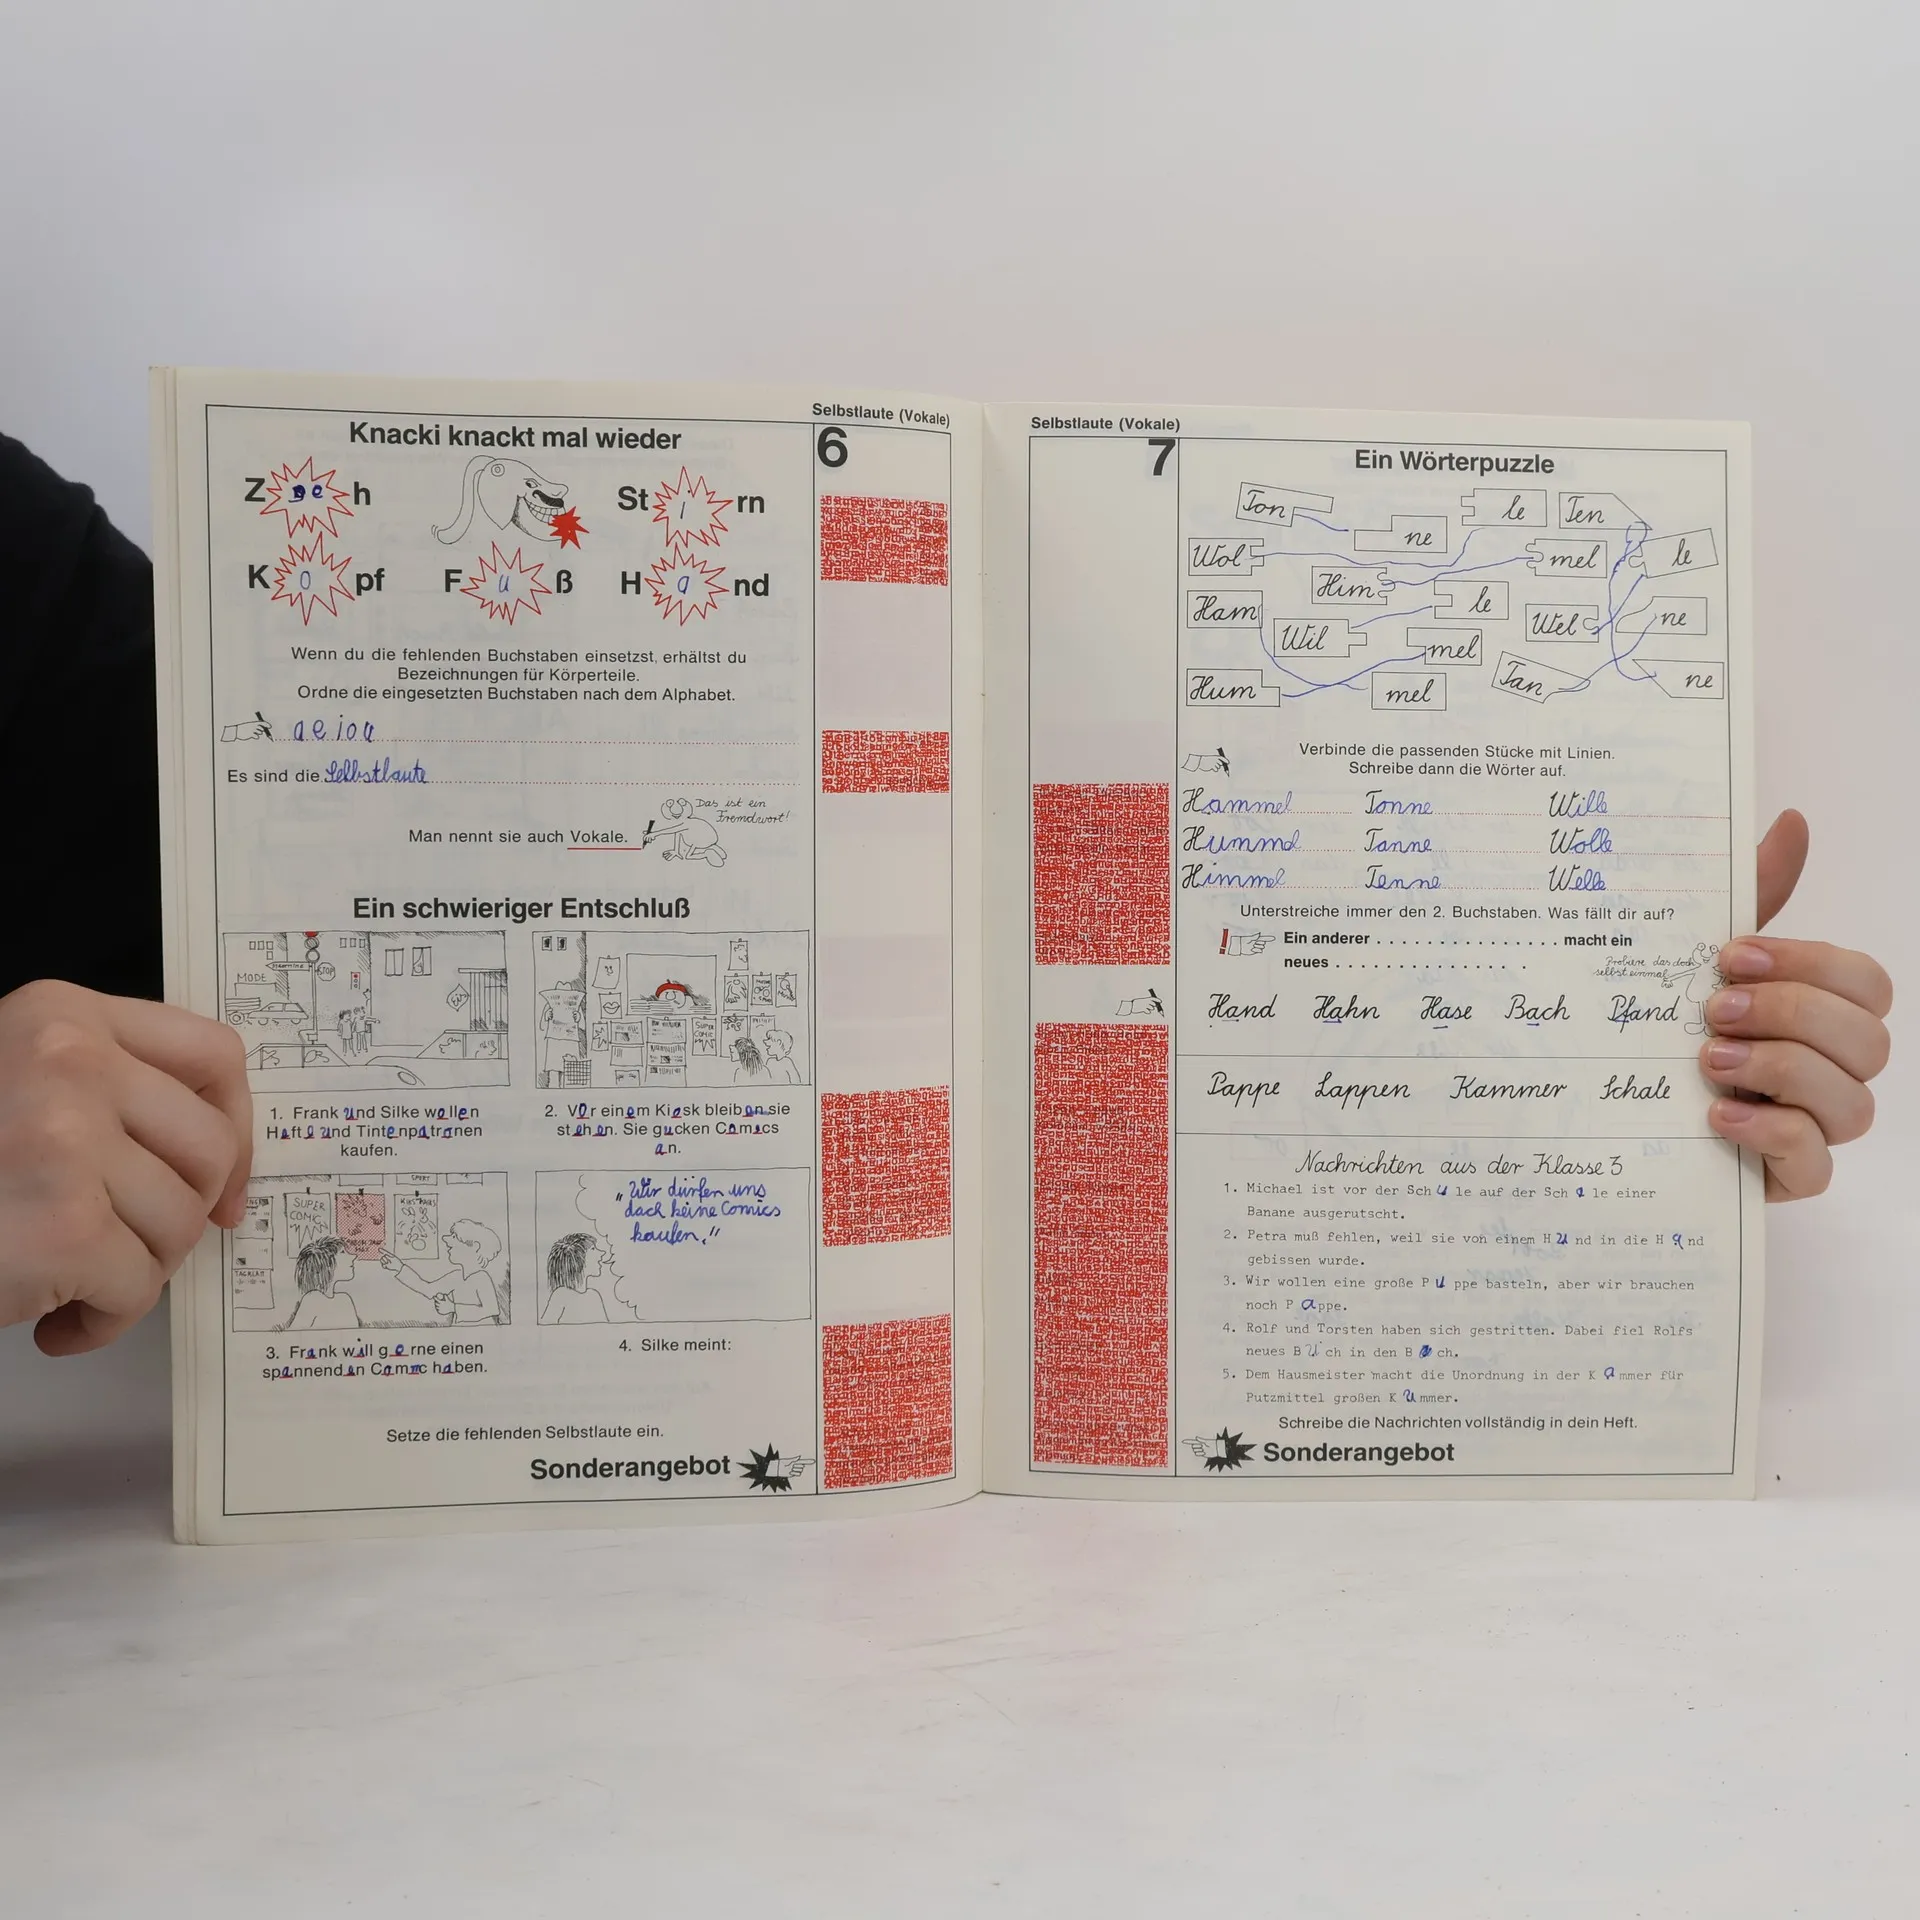 Selbstlaute (Vokale)
6
Knacki knackt mal wieder
Z e h
St i rn
K o pf
F u ß
H a nd
Wenn du die fehlenden Buchstaben einsetzst, erhältst du
Bezeichnungen für Körperteile.
Ordne die eingesetzten Buchstaben nach dem Alphabet.
a e i o u
Es sind die Selbstlaute
Das ist ein
Fremdwort!
Man nennt sie auch Vokale.
Ein schwieriger Entschluß
MODE
STOP
SUPER
COMIC
1. Frank und Silke wollen
Hefte und Tintenpatronen
kaufen.
2. Vor einem Kiosk bleiben sie
stehen. Sie gucken Comics
an.
SUPER
COMIC
3. Frank will gerne einen
spannenden Comic haben.
„Wir dürfen uns
doch keine Comics
kaufen."
4. Silke meint:
Setze die fehlenden Selbstlaute ein.
Sonderangebot
Selbstlaute (Vokale)
7
Ein Wörterpuzzle
Ton ne le Ten
Wol mel le
Him le
Ham Wil mel Wel ne
Hum mel Tan ne
Verbinde die passenden Stücke mit Linien.
Schreibe dann die Wörter auf.
Hammel Tonne Wille
Hummel Tanne Wolle
Himmel Tenne Welle
Unterstreiche immer den 2. Buchstaben. Was fällt dir auf?
Ein anderer . . . . . . . . . . . . . . . . macht ein
neues . . . . . . . . . . . . . .
Probiere das doch
selbst einmal
Hand Hahn Hase Bach Pfand
Pappe Lappen Kammer Schale
Nachrichten aus der Klasse 3
1. Michael ist vor der Sch u le auf der Sch a le einer
Banane ausgerutscht.
2. Petra muß fehlen, weil sie von einem H u nd in die H a nd
gebissen wurde.
3. Wir wollen eine große P u ppe basteln, aber wir brauchen
noch P a ppe.
4. Rolf und Torsten haben sich gestritten. Dabei fiel Rolfs
neues B u ch in den B a ch.
5. Dem Hausmeister macht die Unordnung in der K a mmer für
Putzmittel großen K u mmer.
Schreibe die Nachrichten vollständig in dein Heft.
Sonderangebot